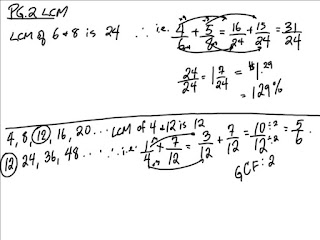 PG.2 LCM
LCM of 6 & 8 is 24 ∴ i.e. 4/6 + 5/8 = 16/24 + 15/24 = 31/24
24/24 = 1 7/24 = 1.29
= 129%
4, 8, 12, 16, 20... LCM of 4 & 12 is 12
12, 24, 36, 48... ∴ i.e. 1/4 + 7/12 = 3/12 + 7/12 = 10÷2/12÷2 = 5/6.
GCF: 2